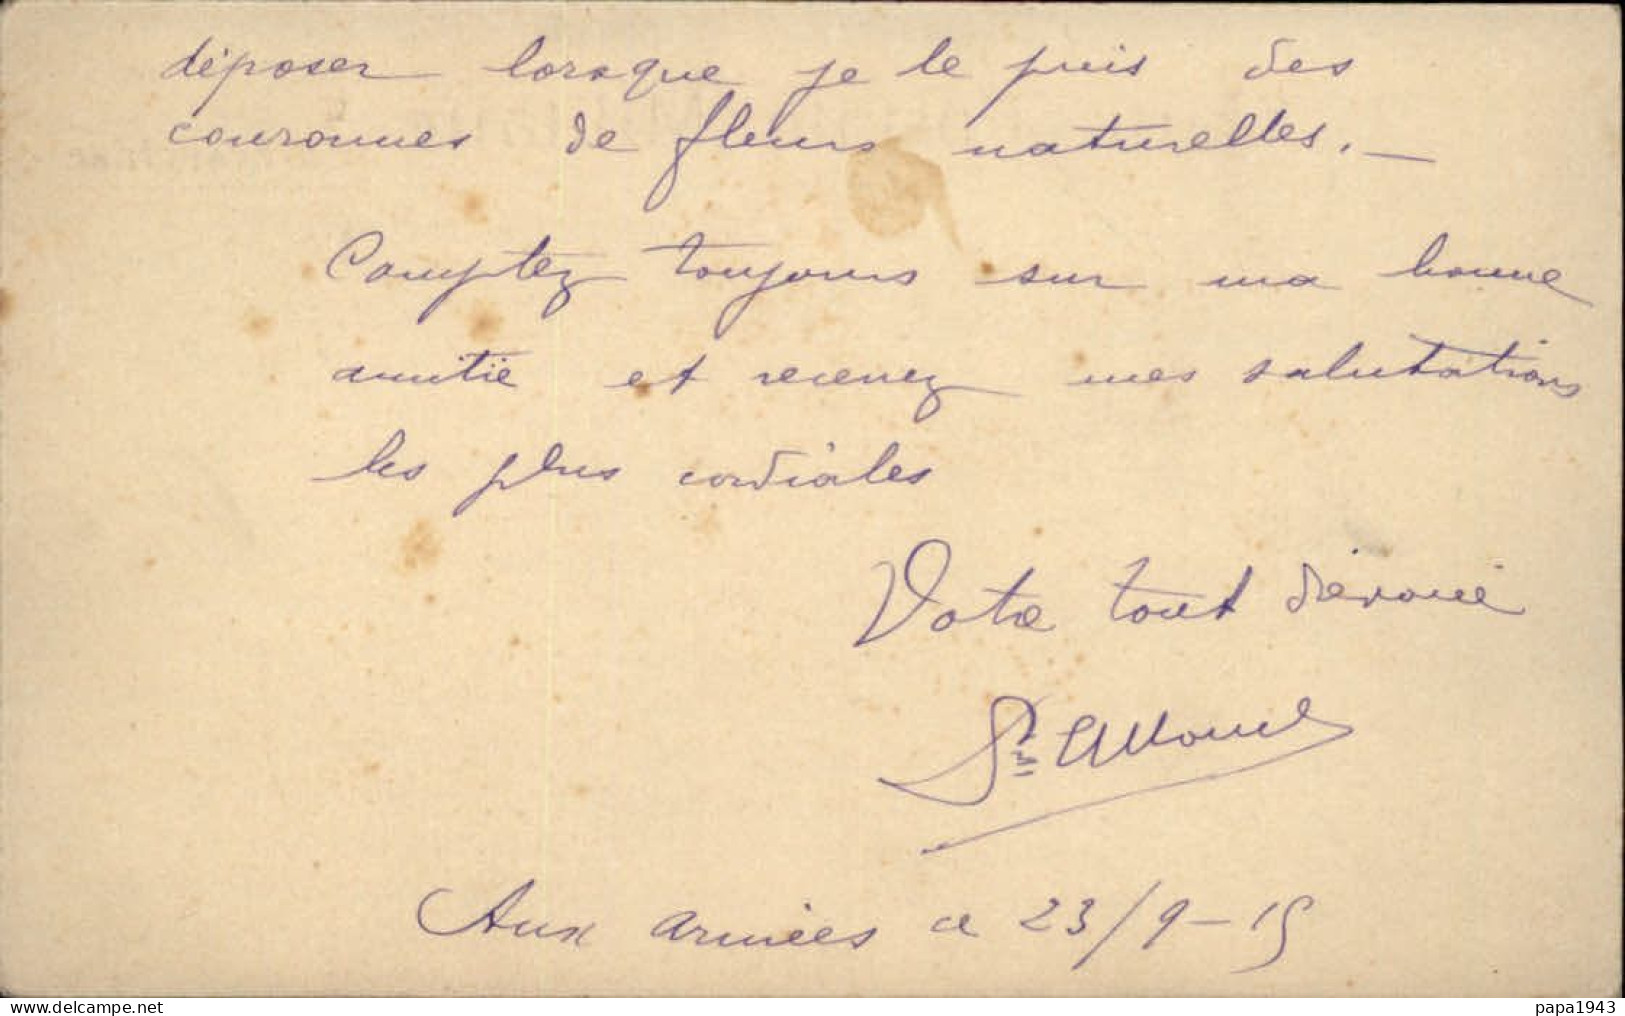 déposer lorsque je le puis des
couronnes de fleurs naturelles. —
Comptez toujours sur ma bonne
amitié et recevez mes salutations
les plus cordiales
Votre tout dévoué
Aux armées ce 23/9-15
papa1943